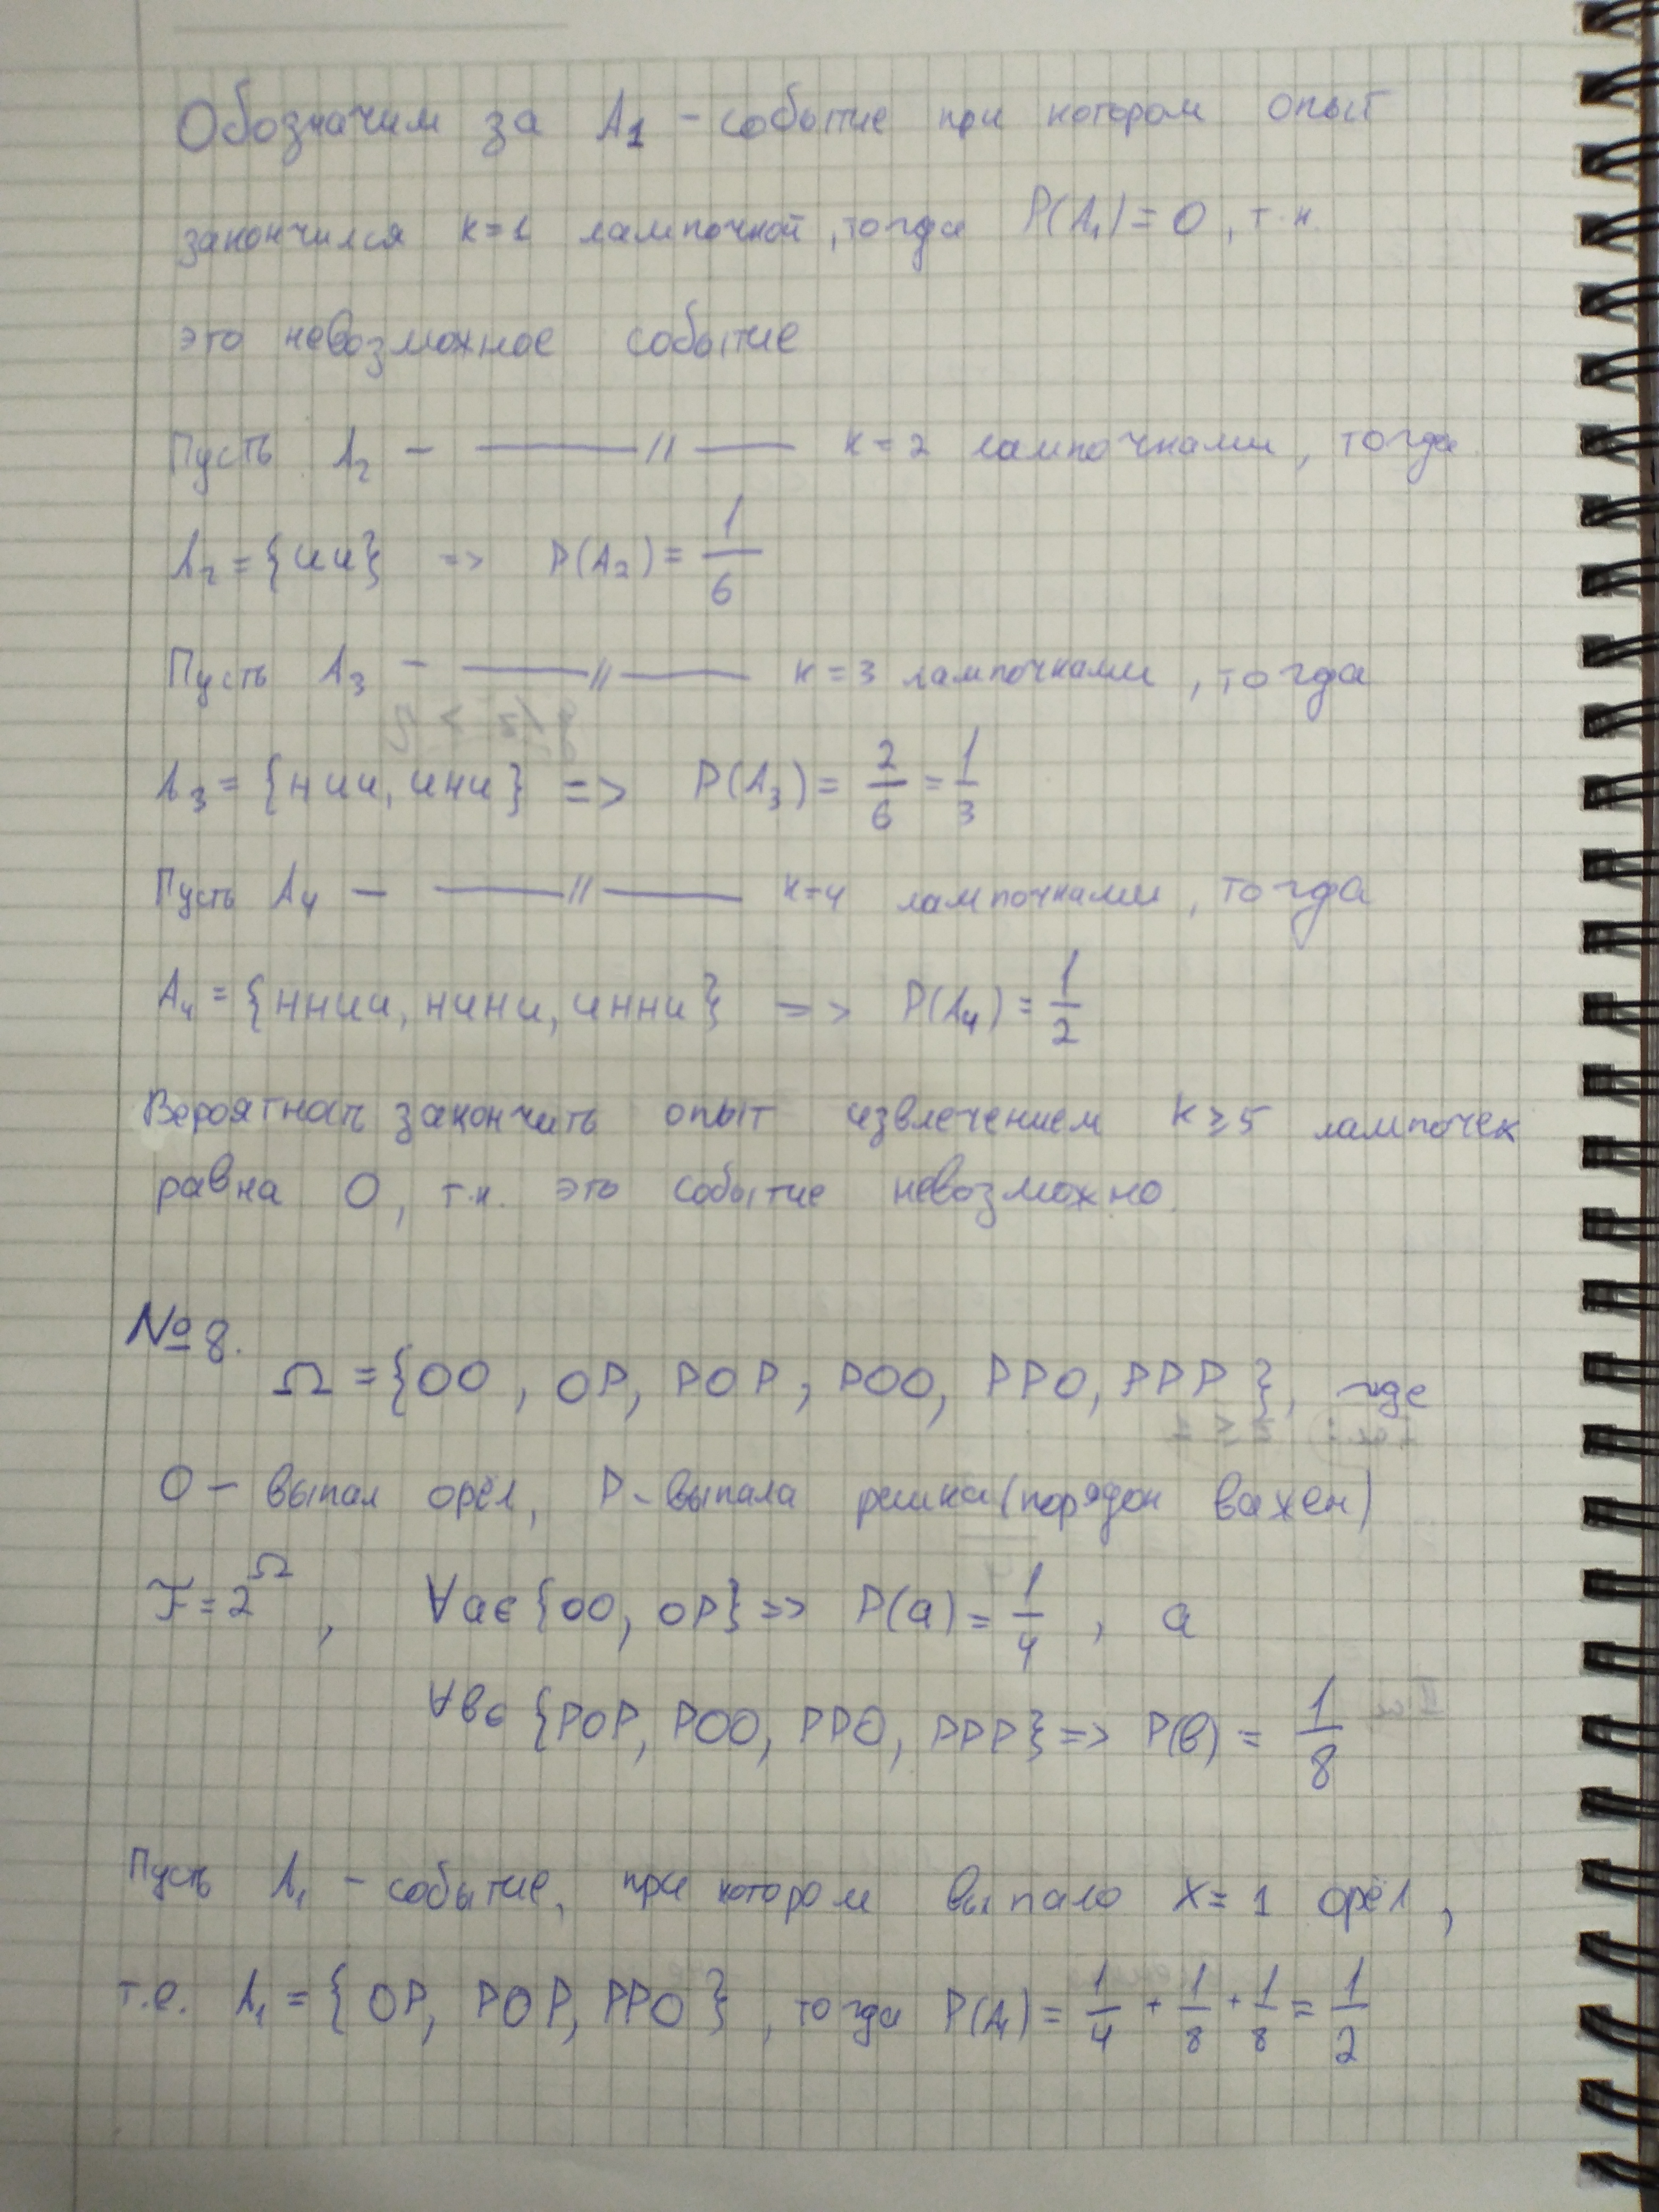 Обозначим за A₁ - событие при котором опыт
закончился k=1 лампочкой, тогда P(A₁)=0, т.к.
это невозможное событие
Пусть A₂ - —— // —— k=2 лампочками, тогда
A₂={ИИ} => P(A₂)=1/6
Пусть A₃ - —— // —— k=3 лампочками, тогда
A₃={НИИ, ИНИ} => P(A₃)=2/6=1/3
Пусть A₄ - —— // —— k=4 лампочками, тогда
A₄={ННИИ, НИНИ, ИННИ} => P(A₄)=1/2
Вероятность закончить опыт извлечением k≥5 лампочек
равна 0, т.к. это событие невозможно.
№8.
Ω={ОО, ОР, РОР, РОО, РРО, РРР}, где
О - выпал орёл, Р - выпала решка (порядок важен)
F=2^Ω, ∀a∈{ОО, ОР} => P(a)=1/4, а
∀b∈{РОР, РОО, РРО, РРР} => P(b)=1/8
Пусть A₁ - событие, при котором выпало X=1 орёл,
т.е. A₁={ОР, РОР, РРО}, тогда P(A₁)=1/4+1/8+1/8=1/2